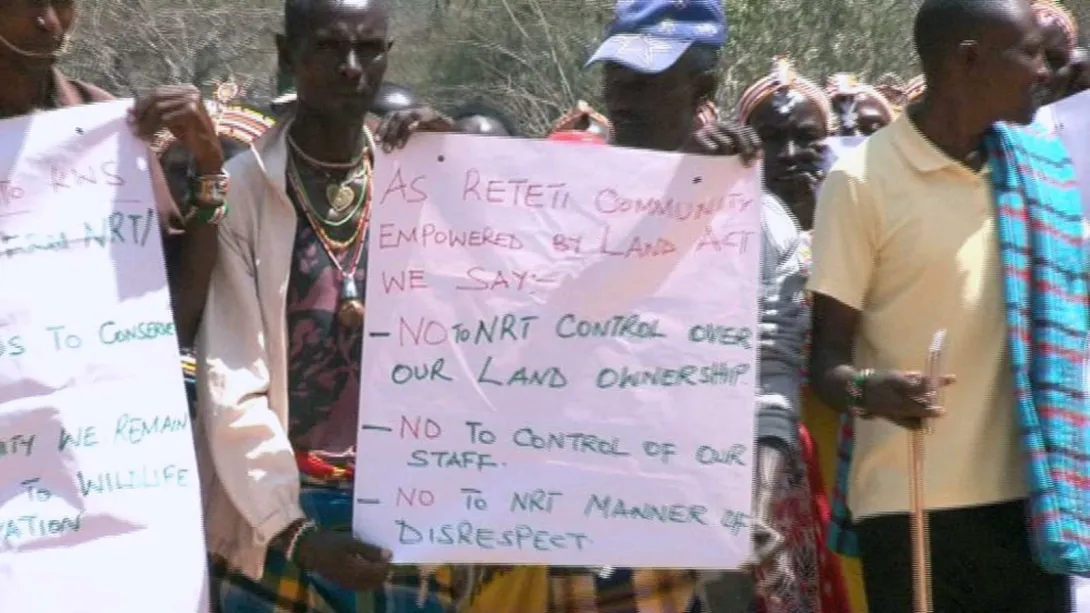 TO RWS
NRT/
TO CONSERVE
WE REMAIN
TO WILDLIFE
AS RETETI COMMUNITY
EMPOWERED BY LAND ACT
WE SAY:-
- NO TO NRT CONTROL OVER
OUR LAND OWNERSHIP.
- NO TO CONTROL OF OUR
STAFF.
- NO TO NRT MANNER OF
DISRESPECT.